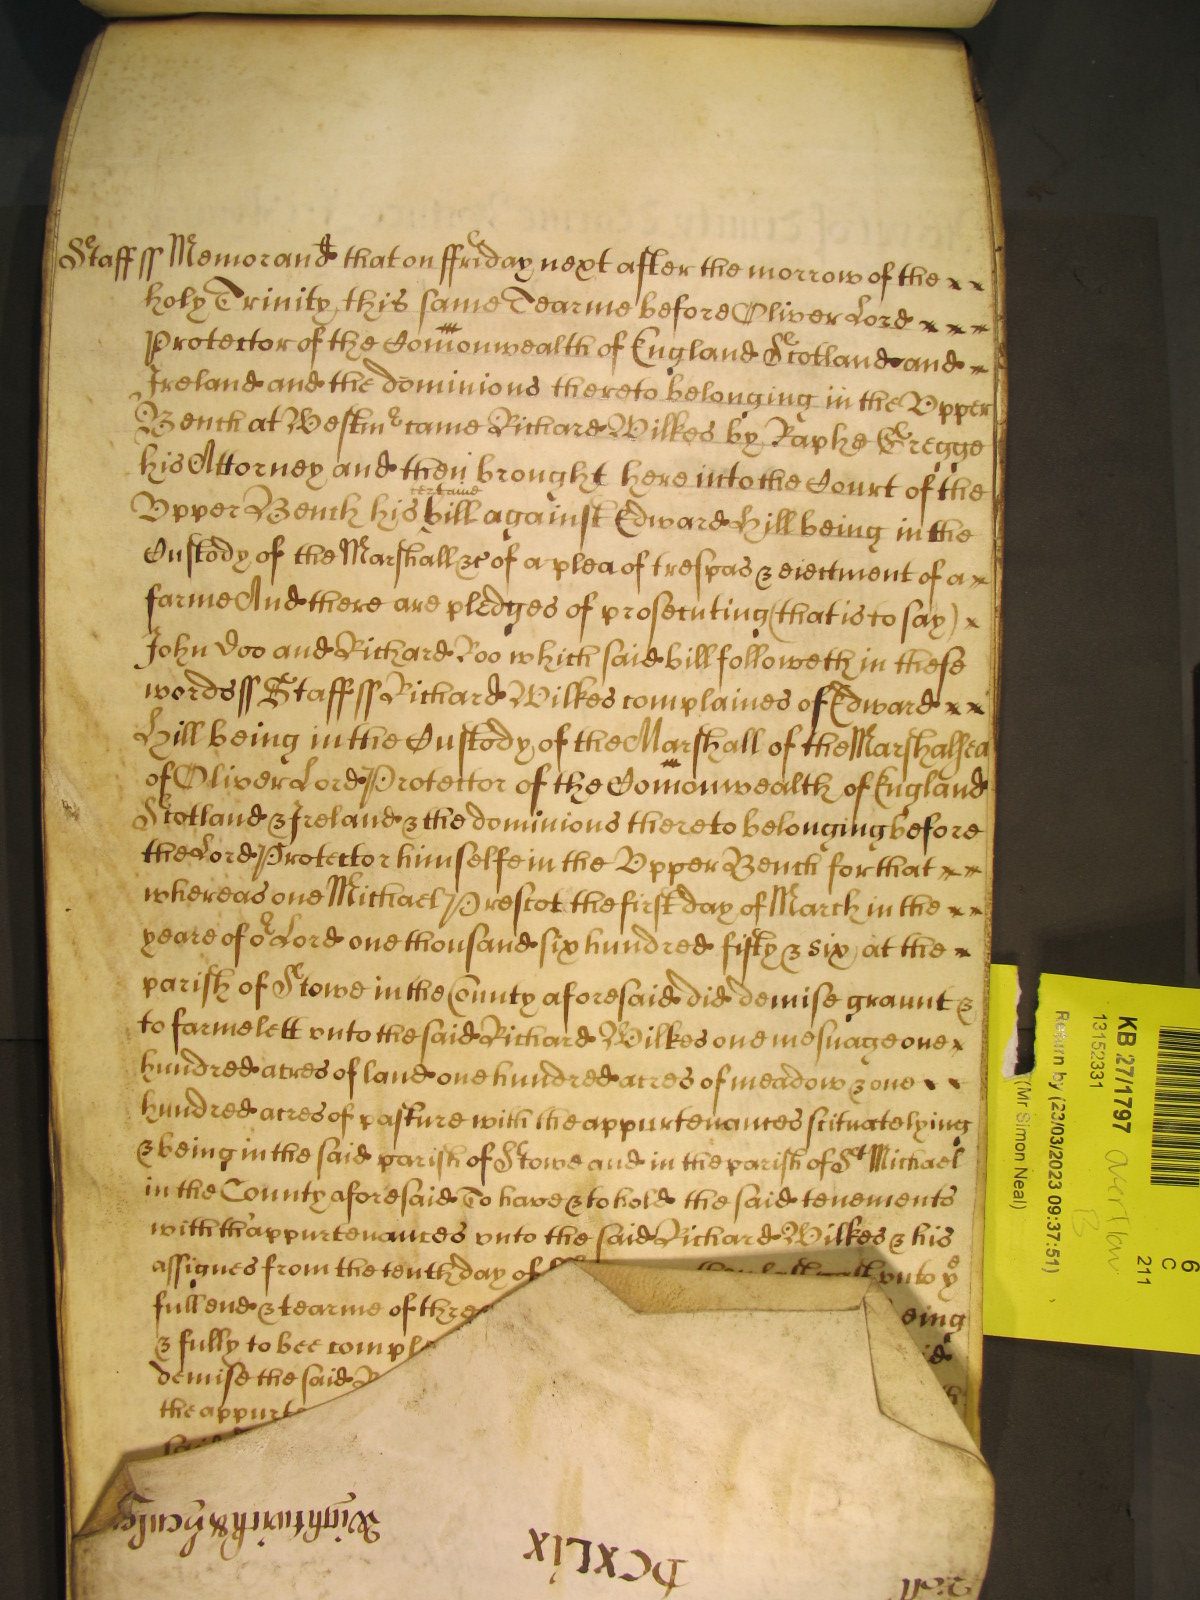 Staff ss Memorand that on ffriday next after the morrow of the
holy Trinity this same Tearme before Oliver Lord
Protector of the Comonwealth of England Scotland and
Ireland and the dominions thereto belonging in the Vpper
Bench at Westmr came Richard Wilkes by Raphe Gregge
his Attorney and then brought here into the Court of the
certaine
Vpper Bench his bill against Edward Hill being in the
Custody of the Marshall &c of a plea of trespas & eiectment of a
farme And there are pledges of prosecuting (that is to say)
John Doo and Richard Roo which said bill followeth in these
words ss Staff ss Richard Wilkes complaines of Edward
Hill being in the Custody of the Marshall of the Marshalsea
of Oliver Lord Protector of the Comonwealth of England
Scotland & Ireland & the dominions thereto belonging before
the Lord Protector himselfe in the Vpper Bench for that
whereas one Michael Prescot the first day of March in the
yeare of or Lord one thousand six hundred fifty & six at the
parish of Stowe in the County aforesaid did demise graunt &
to farme lett vnto the said Richard Wilkes one mesuage one
hundred acres of land one hundred acres of meadow & one
hundred acres of pasture with the appurtenances scituate lying
& being in the said parish of Stowe and in the parish of St Michael
in the County aforesaid To have & to hold the said tenements
with th'appurtenances vnto the said Richard Wilkes & his
assignes from the tenth day of vnto ye
full end & tearme of thre eing
& fully to bee compl id
demise the said R
the appurte
Wightwick & Hculy
DCXLIX
Roll
KB 27/1797
13152331
Return by (23/03/2023 09:37:51)
(Mr Simon Neal)
overflow
B
6
C
211